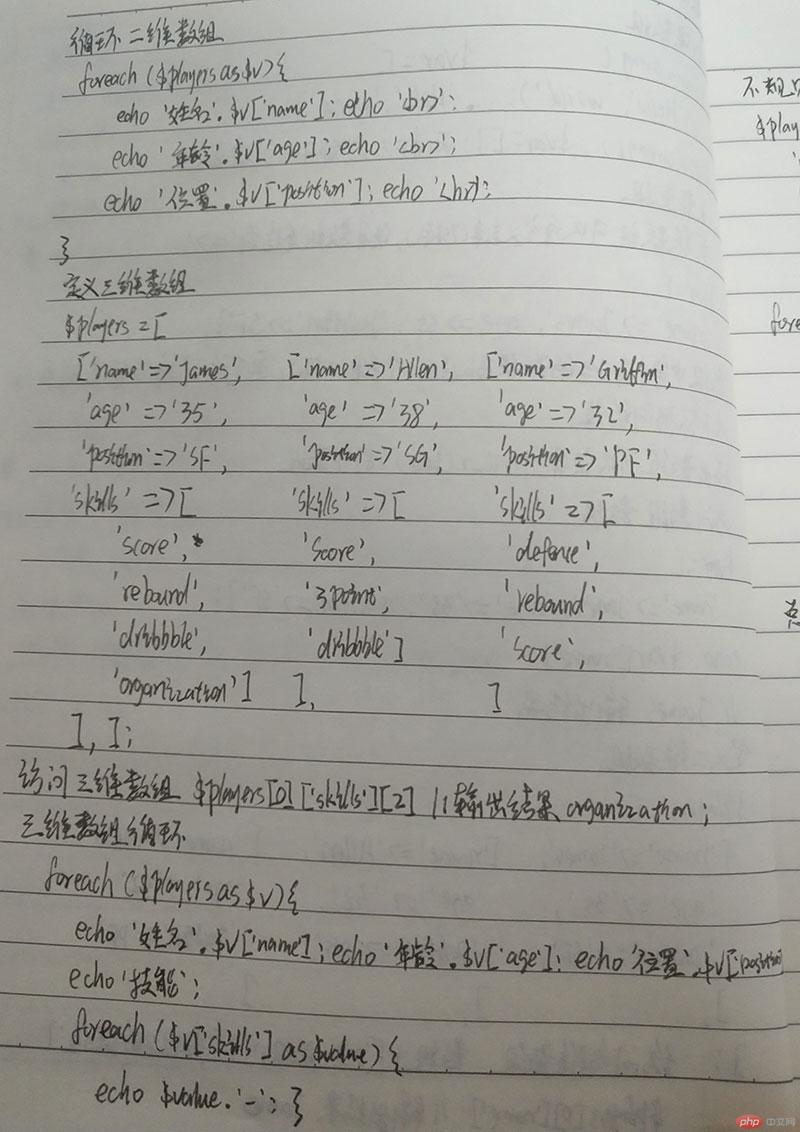 循环二维数组
foreach ($players as $v){
echo '姓名'.$v['name']; echo '<br>';
echo '年龄'.$v['age']; echo '<br>';
echo '位置'.$v['position']; echo '<hr>';
}
定义三维数组
$players = [
['name'=>'James', ['name'=>'Allen', ['name'=>'Griffin',
'age'=>'35', 'age'=>'38', 'age'=>'32',
'position'=>'SF', 'position'=>'SG', 'position'=>'PF',
'skills'=>[ 'skills'=>[ 'skills'=>[
'score', 'score', 'defence',
'rebound', '3point', 'rebound',
'dribbble', 'dribbble'] 'score',
'organization'] ], ]
], ];
访问三维数组 $players[0]['skills'][2] //输出结果 organization;
三维数组循环
foreach ($players as $v){
echo '姓名'.$v['name']; echo '年龄'.$v['age']; echo '位置'.$v['position]
echo '技能';
foreach ($v['skills'] as $value){
echo $value.'-'; }
不规
$play
fore
php 中文网